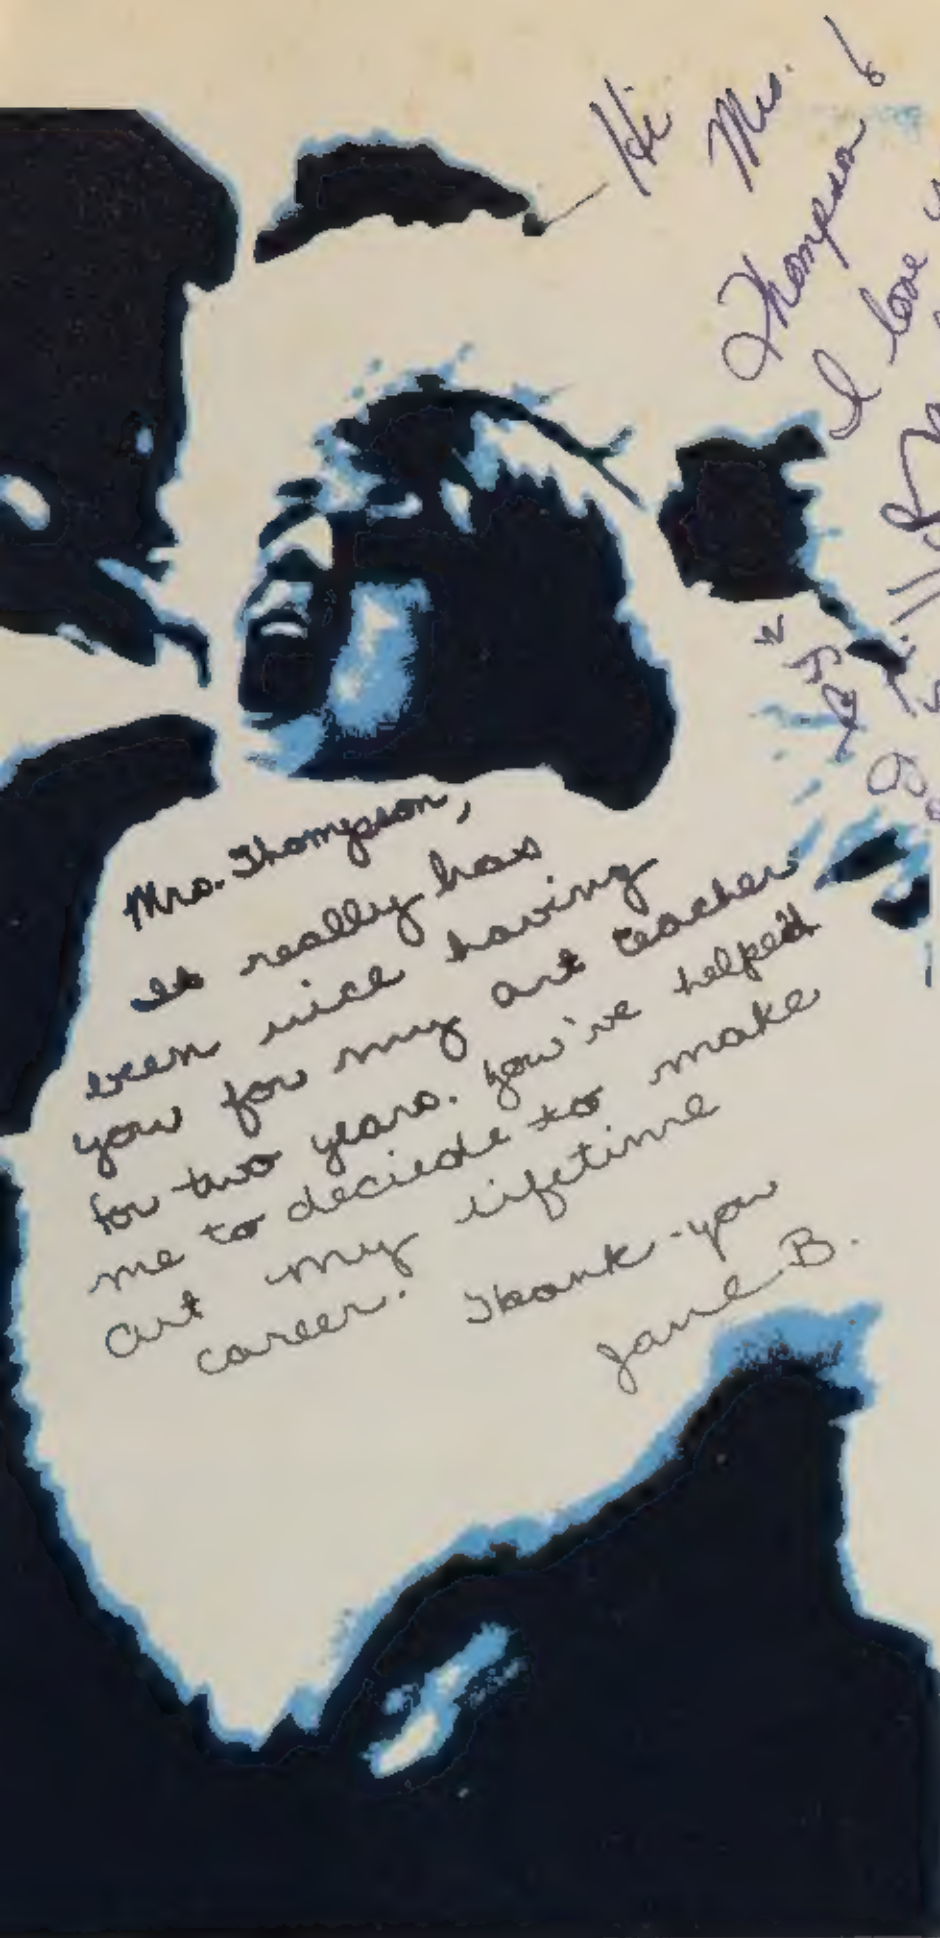 Hi Mrs.
Thompson
I love
Mrs. Thompson,
It really has
been nice having
you for my art teacher
for two years. You've helped
me to deciede to make
art my lifetime
career. Thank-you
Jane B.